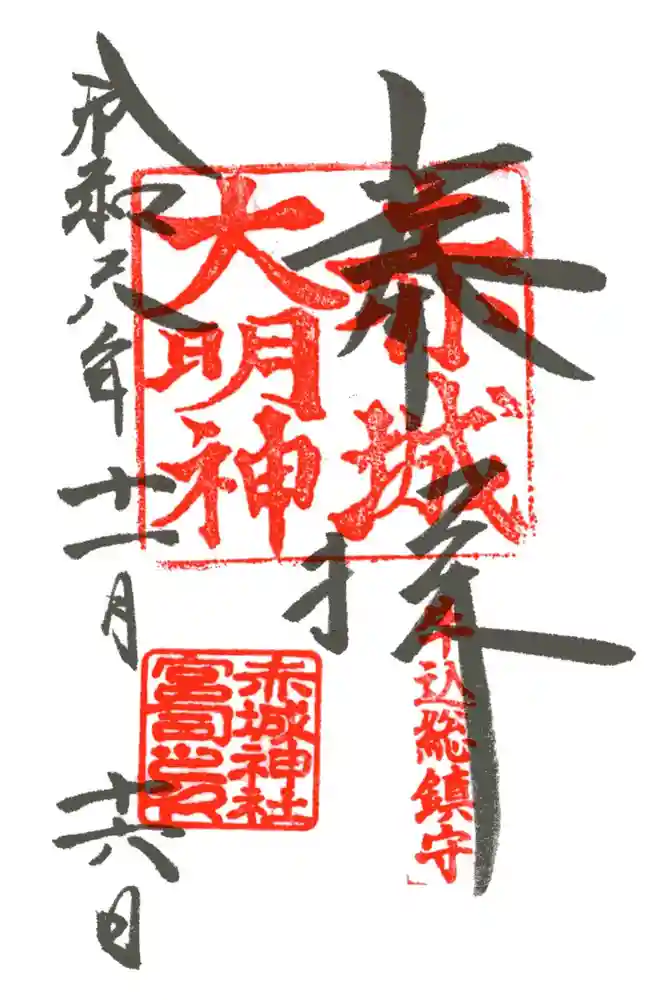 奉拝
赤城
大明神
牛込総鎮守
赤城神社
宮司之印
令和元年
十一月
十六日